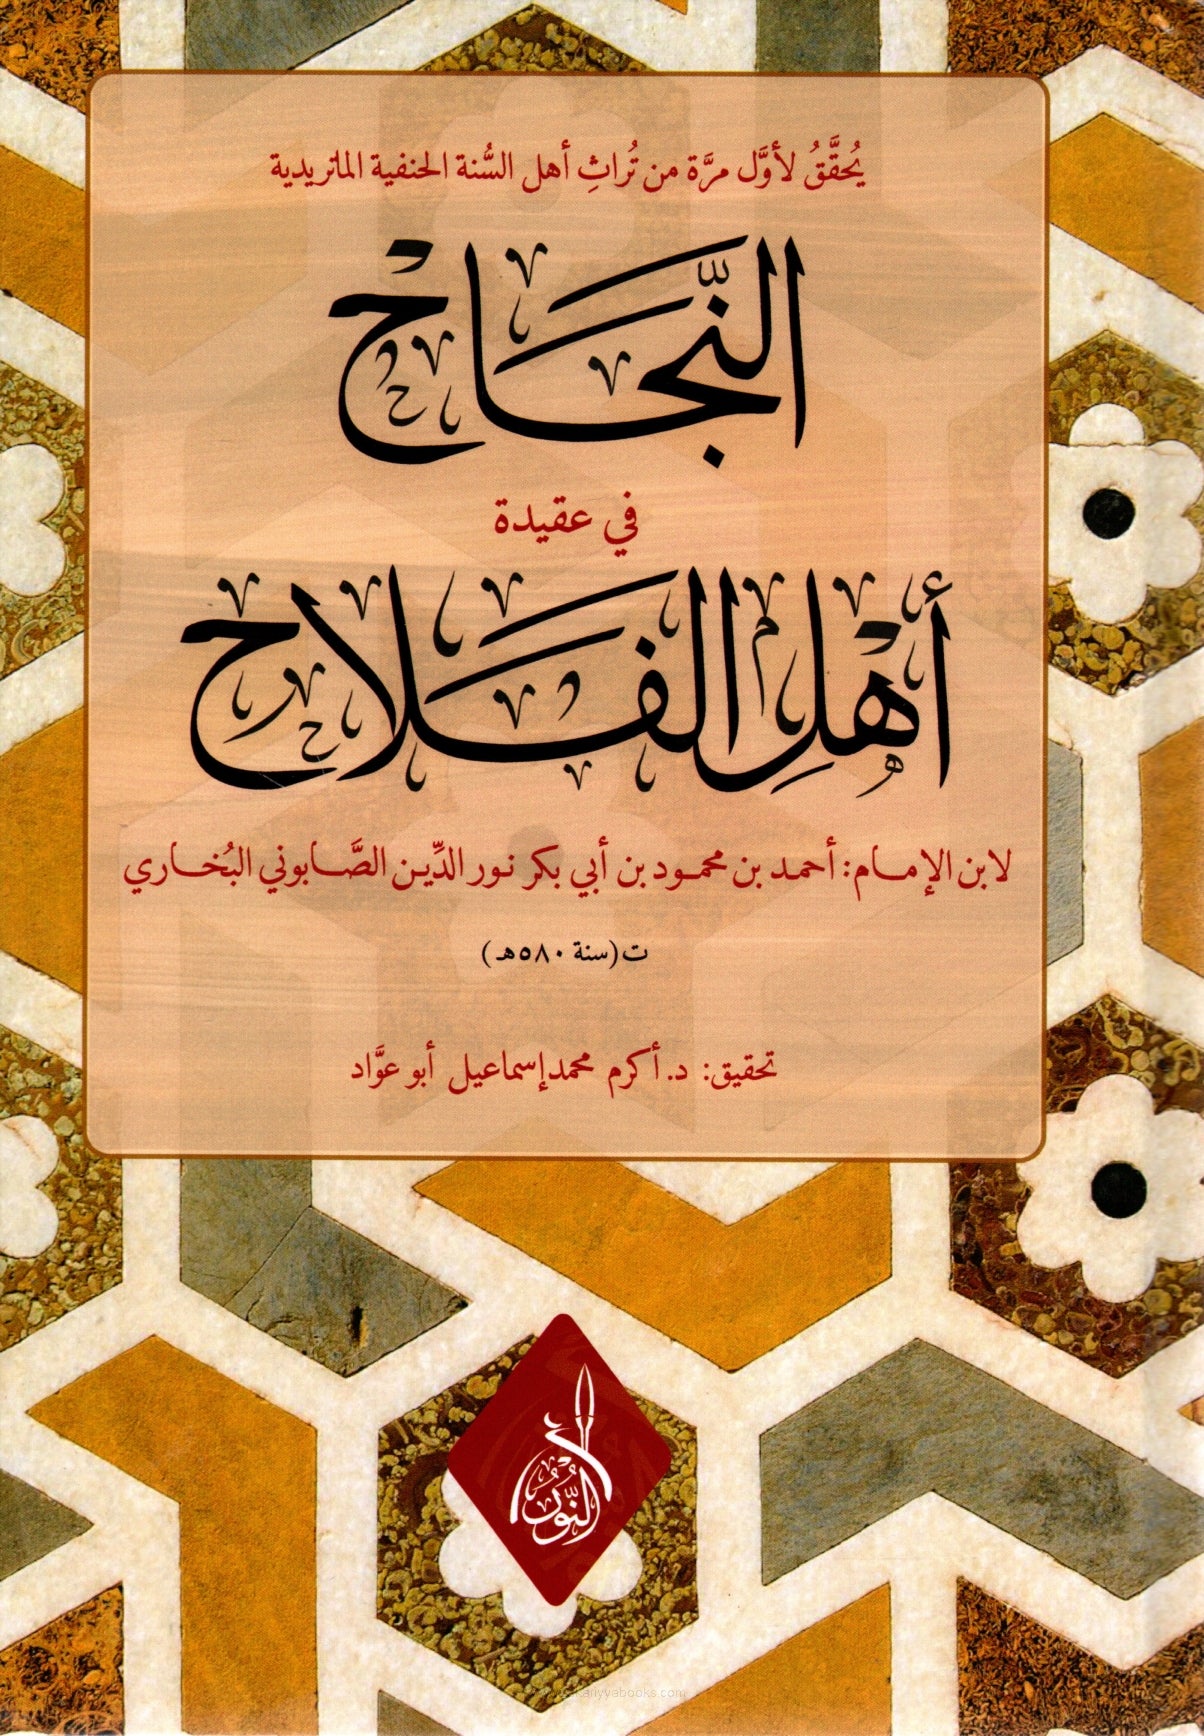 يُحقَّقُ لأوَّل مرَّة من تُراثِ أهل السُّنة الحنفية الماتريدية
النَّجَاح
في عقيدة
أَهْلِ الفَلَاح
لابن الإمام: أحمد بن محمود بن أبي بكر نور الدِّين الصَّابوني البُخاري
ت (سنة ٥٨٠هـ)
تحقيق: د. أكرم محمد إسماعيل أبو عوَّاد
النُّور